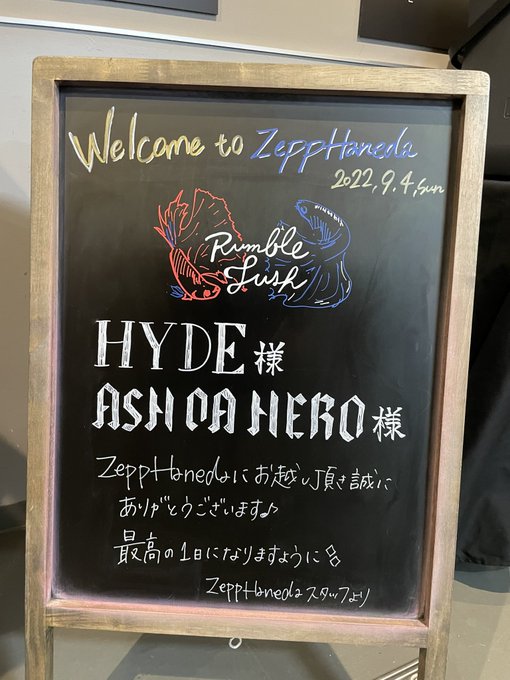 Welcome to ZeppHaneda
2022.9.4.sun
Rumble
Fish
HYDE様
ASH DA HERO様
ZeppHanedaにお越し頂き誠に
ありがとうございます♪
最高の1日になりますように
ZeppHanedaスタッフより